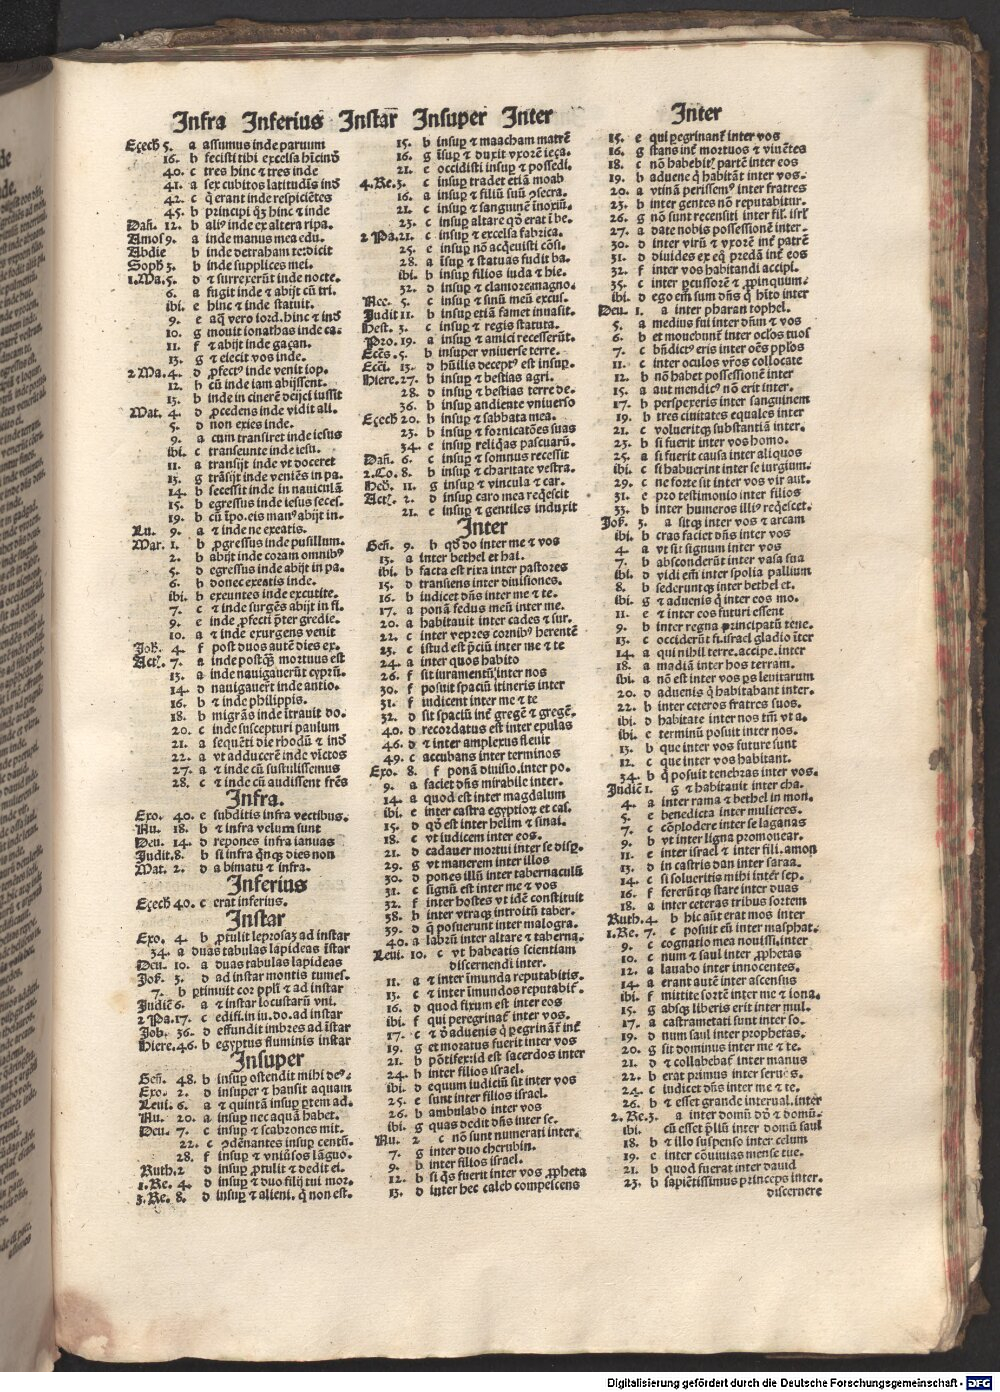 Infra Inferius Instar̄ Insuper Inter
Inter
Eçech̄ 5. a assumus inde paruum
16. b fecisti tibi excelsa hīcinō
40. c tres hinc ⁊ tres inde
41. a sex cubitos latitudīs inō
42. c q̄ erant inde respiciētes
45. b principi q̄ȝ hinc ⁊ inde
Dañ. 12. b aliꝰ inde ex altera ripa.
Amos 9. a inde manus mea edu.
Abdie b inde detraham te:dicit
Soph̄ 3. b inde supplices mei.
1.Ma. 5. d ⁊ surrexerūt inde nocte.
6. a fugit inde ⁊ abijt cū tri.
ibi. e hinc ⁊ inde statuit.
9. e aq̄ vero iord.hinc ⁊ inō
10. g mouit ionathas inde ca.
11. f ⁊ abijt inde gaçan.
13. g ⁊ eiecit vos inde.
2 Ma. 4. d ꝓfectꝰ inde venit iop.
12. b cū inde iam abijssent.
13. b inde in cinerē deijci iussit
Mat. 4. d ꝓcedens inde vidit ali.
5. d non exies inde.
9. a cum transiret inde iesus
ibi. c transeunte inde iesu.
11. a transijt inde vt doceret
13. g trāsijt inde veniēs in pa.
14. b secessit inde in nauiculā
15. b egressus inde iesus seces.
19. b cū īpo.eis manꝰ abijt in.
Lu. 9. a ⁊ inde ne exeatis.
Mar. 1. b ꝓgressus inde pusillum.
2. b abijt inde coram omnibꝰ
5. d egressus inde abijt in pa.
6. b donec exeatis inde.
ibi. b exeuntes inde excutite.
7. c ⁊ inde surgēs abijt in fi.
9. e inde ꝓfecti p̄ter gredie.
10. a ⁊ inde exurgens venit
Joh̄. 4. f post duos autē dies ex.
Act̄. 7. a inde postq̄ȝ mortuus est
13. a inde nauigauerūt cyprū.
14. d nauigauer̄t inde antio.
16. b ⁊ inde philippis.
18. b migrās inde ītrauit do.
20. c inde suscepturi paulum
21. a sequēti die rhodū ⁊ inō
22. a vt adducerē inde vīctos
27. a ⁊ inde cū sustulissemus
28. c ⁊ inde cū audissent frēs
Infra.
Exo. 40. e subditis infra vectibus.
Nu. 18. b ⁊ infra velum sunt
Deu. 14. d repones infra ianuas
Judit. 8. b si infra q̄nqȝ dies non
Mat. 2. d a bimatu ⁊ infra.
Inferius
Eçech̄ 40. c erat inferius.
Instar
Exo. 4. b ꝓtulit leprosaȝ ad instar
34. a duas tabulas lapideas īstar
Deu. 10. a duas tabulas lapideas
Joſ. 3. d ad instar montis tumes.
7. b ꝑtimuit cor ppłi ⁊ ad instar
Judic̄ 6. a ⁊ instar locustarū vni.
2 Pa. 17. c edifi.in iu.do.ad instar
Job. 36. d effundit imbres ad īstar
Hiere. 46. b egyptus fluminis instar
Insuper
Gen̄. 48. b insuꝑ ostendit mihi deꝰ.
Exo. 2. d insuꝑ ⁊ hansit aquam
Leui. 6. a ⁊ quintā insuꝑ ꝑtem ad.
Nu. 20. a insuꝑ nec aquā habet.
Deu. 7. c insuꝑ ⁊ scabrones mit.
22. c ꝯdēnantes insuꝑ centū.
28. f insuꝑ ⁊ vniūsos lāguo.
Ruth. 2 d insuꝑ ꝓtulit ⁊ dedit ei.
1.Re. 4. d insuꝑ ⁊ duo filij tui mor.
3.Re. 8. d insuꝑ ⁊ alieni. q̄ non est.
15. b insuꝑ ⁊ maacham matrē
16. g īsuꝑ ⁊ duxit vxorē ieça.
21. e occidisti insuꝑ ⁊ possedi.
4.Re. 3. c insuꝑ tradet etiā moab
16. a insuꝑ ⁊ filiū suū ꝯsecra.
21. c insuꝑ ⁊ sanguinē īnoxiū.
23. c insuꝑ altare qđ erat ī be.
2 Pa. 21. c insuꝑ ⁊ excelsa fabrica.
25. e insuꝑ nō acq̄euisti cōsi.
28. a īsuꝑ ⁊ statuas fudit ba.
ibi. b insuꝑ filios iuda ⁊ hie.
32. d insuꝑ ⁊ clamore magno.
Nee. 5. c insuꝑ ⁊ sinū meū excus.
Judit 11. b insuꝑ etiā famet inuasit.
Hest. 3. c insuꝑ ⁊ regis statuta.
Pro. 19. a insuꝑ ⁊ amici recesserūt.
Eccs. 5. b insuper vniuerse terre.
Ecci. 13. d hūilis deceptꝰ est insuꝑ.
Hiere. 27. b insuꝑ ⁊ bestias agri.
28. d insuꝑ ⁊ bestias terre de.
36. b insuꝑ audiente vniuerso
Eçech̄ 20. b insuꝑ ⁊ sabbata mea.
23. b insuꝑ ⁊ fornicatōes suas
34. e insuꝑ reliq̄as pascuarū.
Dañ. 6. c insuꝑ ⁊ somnus recessit
2.Co. 8. b insuꝑ ⁊ charitate vestra.
Heb̄. 11. g insuꝑ ⁊ vincula ⁊ car.
Act̄. 2. d insuꝑ caro mea req̄escit
21. e insuꝑ ⁊ gentiles induxit
Inter
Gen̄. 9. b qđ do inter me ⁊ vos
13. a inter bethel et hai.
ibi. b facta est rixa inter pastores
15. d transiens inter diuisiones.
16. b iudicet dn̄s inter me ⁊ te.
17. a ponā fedus meū inter me.
20. a habitauit inter cades ⁊ sur.
22. c inter vepres cornibꝰ herentē
23. c istud est p̄ciū inter me ⁊ te
24. a inter quos habito
26. f sit iuramentū inter nos
30. f posuit spaciū itineris inter
31. f iudicent inter me ⁊ te
32. d sit spaciū int̄ gregē ⁊ gregē.
40. d recordatus est inter epulas
46. d ⁊ inter amplexus fleuit
49. c accubans inter terminos
Exo. 8. f ponā diuisio.inter po.
9. a faciet dn̄s mirabile inter.
14. a quod est inter magdalum
ibi. e inter castra egyptioꝝ et cas.
15. d qđ est inter helim ⁊ sinai.
18. c vt iudicem inter eos.
21. d cadauer mortui inter se disp.
29. g vt manerem inter illos
30. d pones illū inter tabernaculū
31. c signū est inter me ⁊ vos
32. f inter hostes vt idē constituit
38. b inter vtraqȝ introitū taber.
39. d q̄ posuerunt inter malogra.
40. a labrū inter altare ⁊ taberna.
Leui. 10. c vt habeatis scientiam
discernendi inter.
11. a ⁊ inter īmunda reputabitis.
13. c ⁊ inter īmundos reputabit̄.
16. d quod fixum est inter eos
ibi. f qui peregrinat̄ inter vos.
17. c ⁊ đ aduenis q̄ ꝑegrināt̄ int̄
19. g et moratus fuerit inter vos
21. b pōtifex:id est sacerdos inter
24. b inter filios israel.
ibi. d equum iudiciū sit inter vos
25. e sunt inter filios israel.
26. b ambulabo inter vos
ibi. g quas dedit dn̄s inter se.
Nu. 2 c nō sunt numerati inter.
7. g inter duo cherubin.
9. b inter filios israel.
12. b si q̄s fuerit inter vos ꝓpheta
13. d inter hec caleb compescens
15. e qui ꝑegrinant̄ inter vos
16. g stans int̄ mortuos ⁊ viuētes
18. c nō habebitꝭ partē inter eos
19. b aduene q̄ habitāt inter vos.
20. a vtinā perissemꝰ inter fratres
23. b inter gentes nō reputabitur.
26. g nō sunt recensiti inter fił. isrł
27. a date nobis possessionē inter.
30. d inter virū ⁊ vxorē int̄ patrē
31. d diuides ex eq̄ predā int̄ eos
32. f inter vos habitandi accipi.
35. c inter ꝑcussorē ⁊ ꝓpinquum.
ibi. d ego em̄ sum dn̄s q̄ hīto inter
Deu. 1. a inter pharan tophel.
5. a medius fui inter dn̄m ⁊ vos
6. b et mouebunt̄ inter oclos tuos
7. c bn̄dictꝰ eris inter oēs ppłos
11. c inter oculos vr̄os collocate
12. b nō habet possessionē inter
15. a aut mendicꝰ nō erit inter.
17. b perspexeris inter sanguinem
19. b tres ciuitates equales inter
21. c volueritqȝ substantiā inter.
23. b si fuerit inter vos homo.
25. a si fuerit causa inter aliquos
ibi. c si habuerint inter se iurgium.
29. c ne forte sit inter vos vir aut.
31. e pro testimonio inter filios
33. b inter humeros illiꝰ req̄escet.
Joſ. 3. a sitqȝ inter vos ⁊ arcam
ibi. b cras faciet dn̄s inter vos
4. a vt sit signum inter vos
7. b absconderūt inter vasa sua
ibi. d vidi em̄ inter spolia pallium
8. b sederuntqȝ inter bethel et.
ibi. g ⁊ aduenis q̄ inter eos mo.
11. e ⁊ inter eos futuri essent
9. b inter regna principatū tene.
13. c occiderūt fi.israel gladio īter
14. a qui nihil terre.accipe.inter
18. a madiā inter hos terram.
ibi. a nō est inter vos ps leuitarum
20. d aduenis q̄ habitabant inter.
22. b inter ceteros fratres suos.
ibi. d habitate inter nos tm̄ vt a.
ibi. e terminū posuit inter nos.
13. b que inter vos future sunt
12. c que inter vos habitant.
34. b q̄ posuit tenebras inter vos.
Judic̄ 1. g ⁊ habitauit inter cha.
4. a inter rama ⁊ bethel in mon.
5. e benedicta inter mulieres.
7. c cōplodere inter se laganas
9. b vt inter ligna promouear.
11. e inter israel ⁊ inter fili.amon
13. d in castris dan inter saraa.
14. c si solueritis mihi inter sep.
16. f fererūtqȝ stare inter duas
18. a inter ceteras tribus sortem
Ruth. 4. b hic aūt erat mos inter
1.Re. 7. c posuit eū inter masphat.
9. c cognatio mea nouissi.inter
10. c num ⁊ saul inter ꝓphetas
12. a lauabo inter innocentes.
14. a erant autē inter ascensus
ibi. f mittite sortē inter me ⁊ iona.
15. g absqȝ liberis erit inter mul.
17. a castrametati sunt inter so.
19. d num saul inter prophetas.
20. g sit dominus inter me ⁊ te.
21. d ⁊ collabebat̄ inter manus
22. b erat primus inter seruos.
24. c iudicet dn̄s inter me ⁊ te.
26. b ⁊ esset grande interual.inter
2.Re. 3. a inter domū dđ ⁊ domū.
ibi. cū esset p̄liū inter domū saul
18. b ⁊ illo suspenso inter celum
19. e inter cōuiuas mense tue.
21. b quod fuerat inter dauid
23. b sapiētissimus princeps inter.
discernere
Digitalisierung gefördert durch die Deutsche Forschungsgemeinschaft - DFG